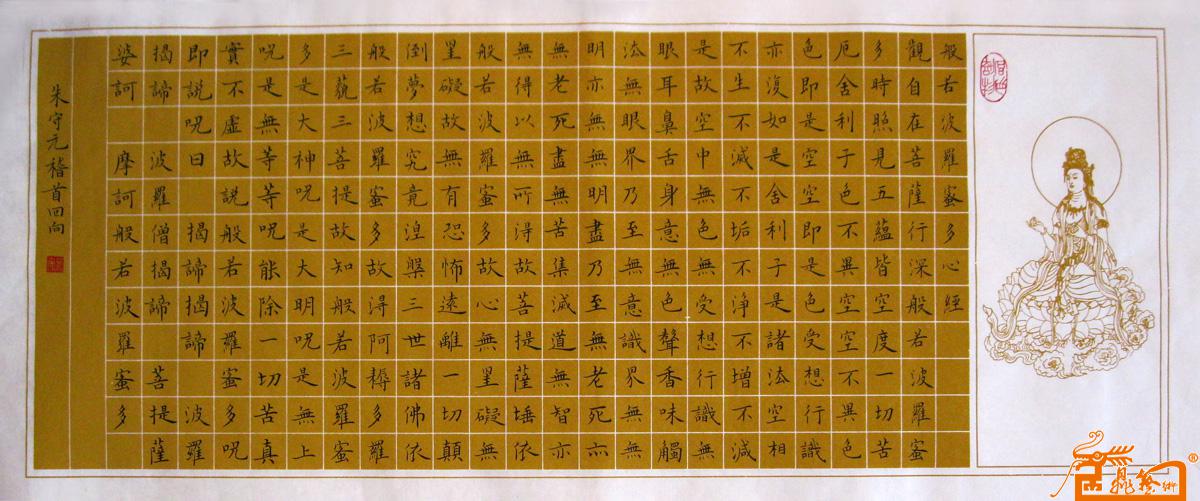 般若波羅蜜多心經
觀自在菩薩行深般若波羅蜜
多時照見五蘊皆空度一切苦
厄舍利子色不異空空不異色
色即是空空即是色受想行識
亦復如是舍利子是諸法空相
不生不滅不垢不淨不增不減
是故空中無色無受想行識無
眼耳鼻舌身意無色聲香味觸
法無眼界乃至無意識界無無
明亦無無明盡乃至無老死亦
無老死盡無苦集滅道無智亦
無得以無所得故菩提薩埵依
般若波羅蜜多故心無罣礙無
罣礙故無有恐怖遠離一切顛
倒夢想究竟涅槃三世諸佛依
般若波羅蜜多故得阿耨多羅
三藐三菩提故知般若波羅蜜
多是大神咒是大明咒是無上
咒是無等等咒能除一切苦真
實不虛故說般若波羅蜜多咒
即說咒曰 揭諦揭諦 波羅
揭諦 波羅僧揭諦 菩提薩
婆訶 摩訶般若波羅蜜多
朱守元稽首回向